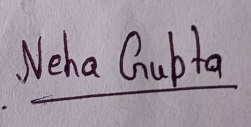 Neha Gupta